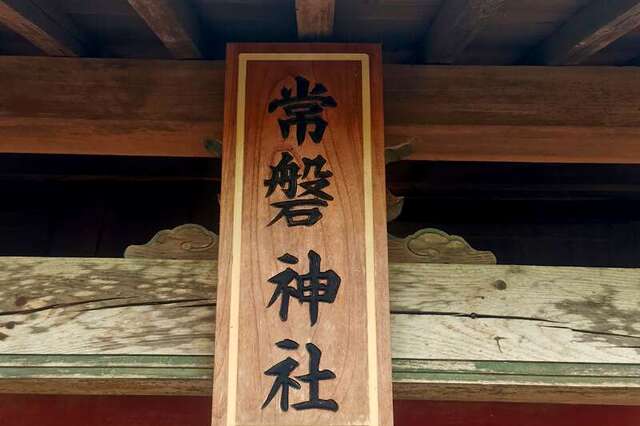 常磐神社